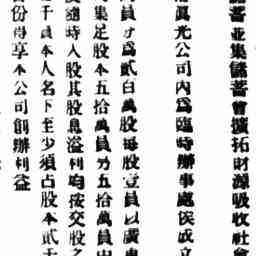 蓄並集儲蓄會擴拓財源吸收社會
萬元公司內爲臨時辦事處俟成立
萬員分爲貳百萬股每股壹員以廣
集足股本五拾萬員分五拾萬員由
隨時入股其股息溢利均按交股之
千員本人名下至少須占股本貳千
份得享本公司創辦利益